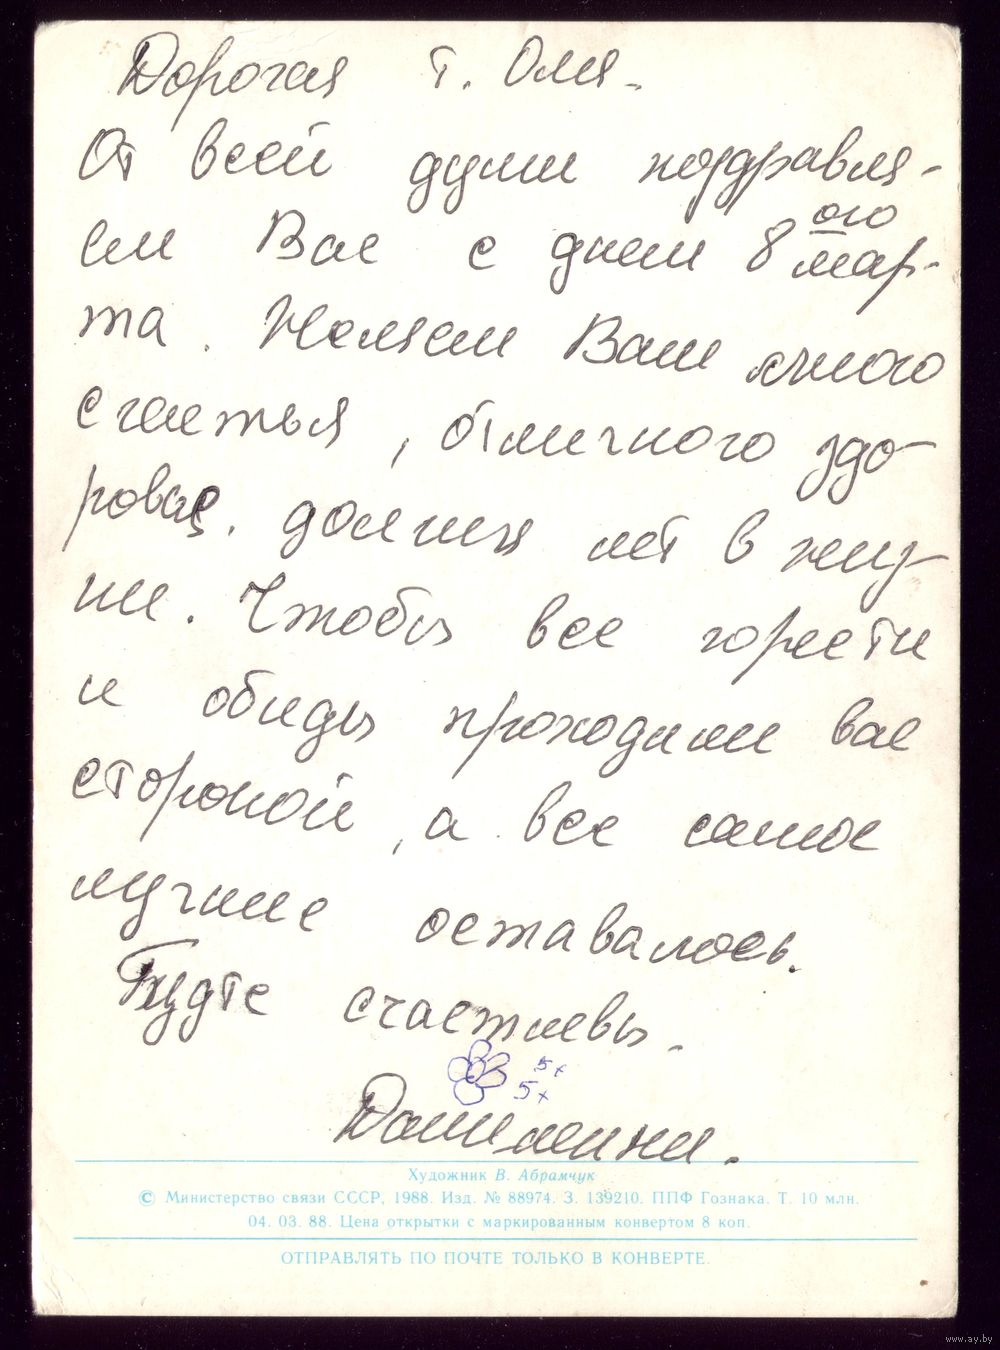 Дорогая т. Оля.
От всей души поздравля-
ем Вас с днем 8 ого мар-
та. Желаем Вам много
счастья, отличного здо-
ровья. долгих лет в жиз-
ни. Чтобы все горести
и обиды проходили вас
стороной, а все самое
лучшее оставалось.
Будте счастливы.
5х
5х
Художник В. Абрамчук
© Министерство связи СССР, 1988. Изд. № 88974. З. 139210. ППФ Гознака. Т. 10 млн.
04. 03. 88. Цена открытки с маркированным конвертом 8 коп.
ОТПРАВЛЯТЬ ПО ПОЧТЕ ТОЛЬКО В КОНВЕРТЕ.
www.ay.by